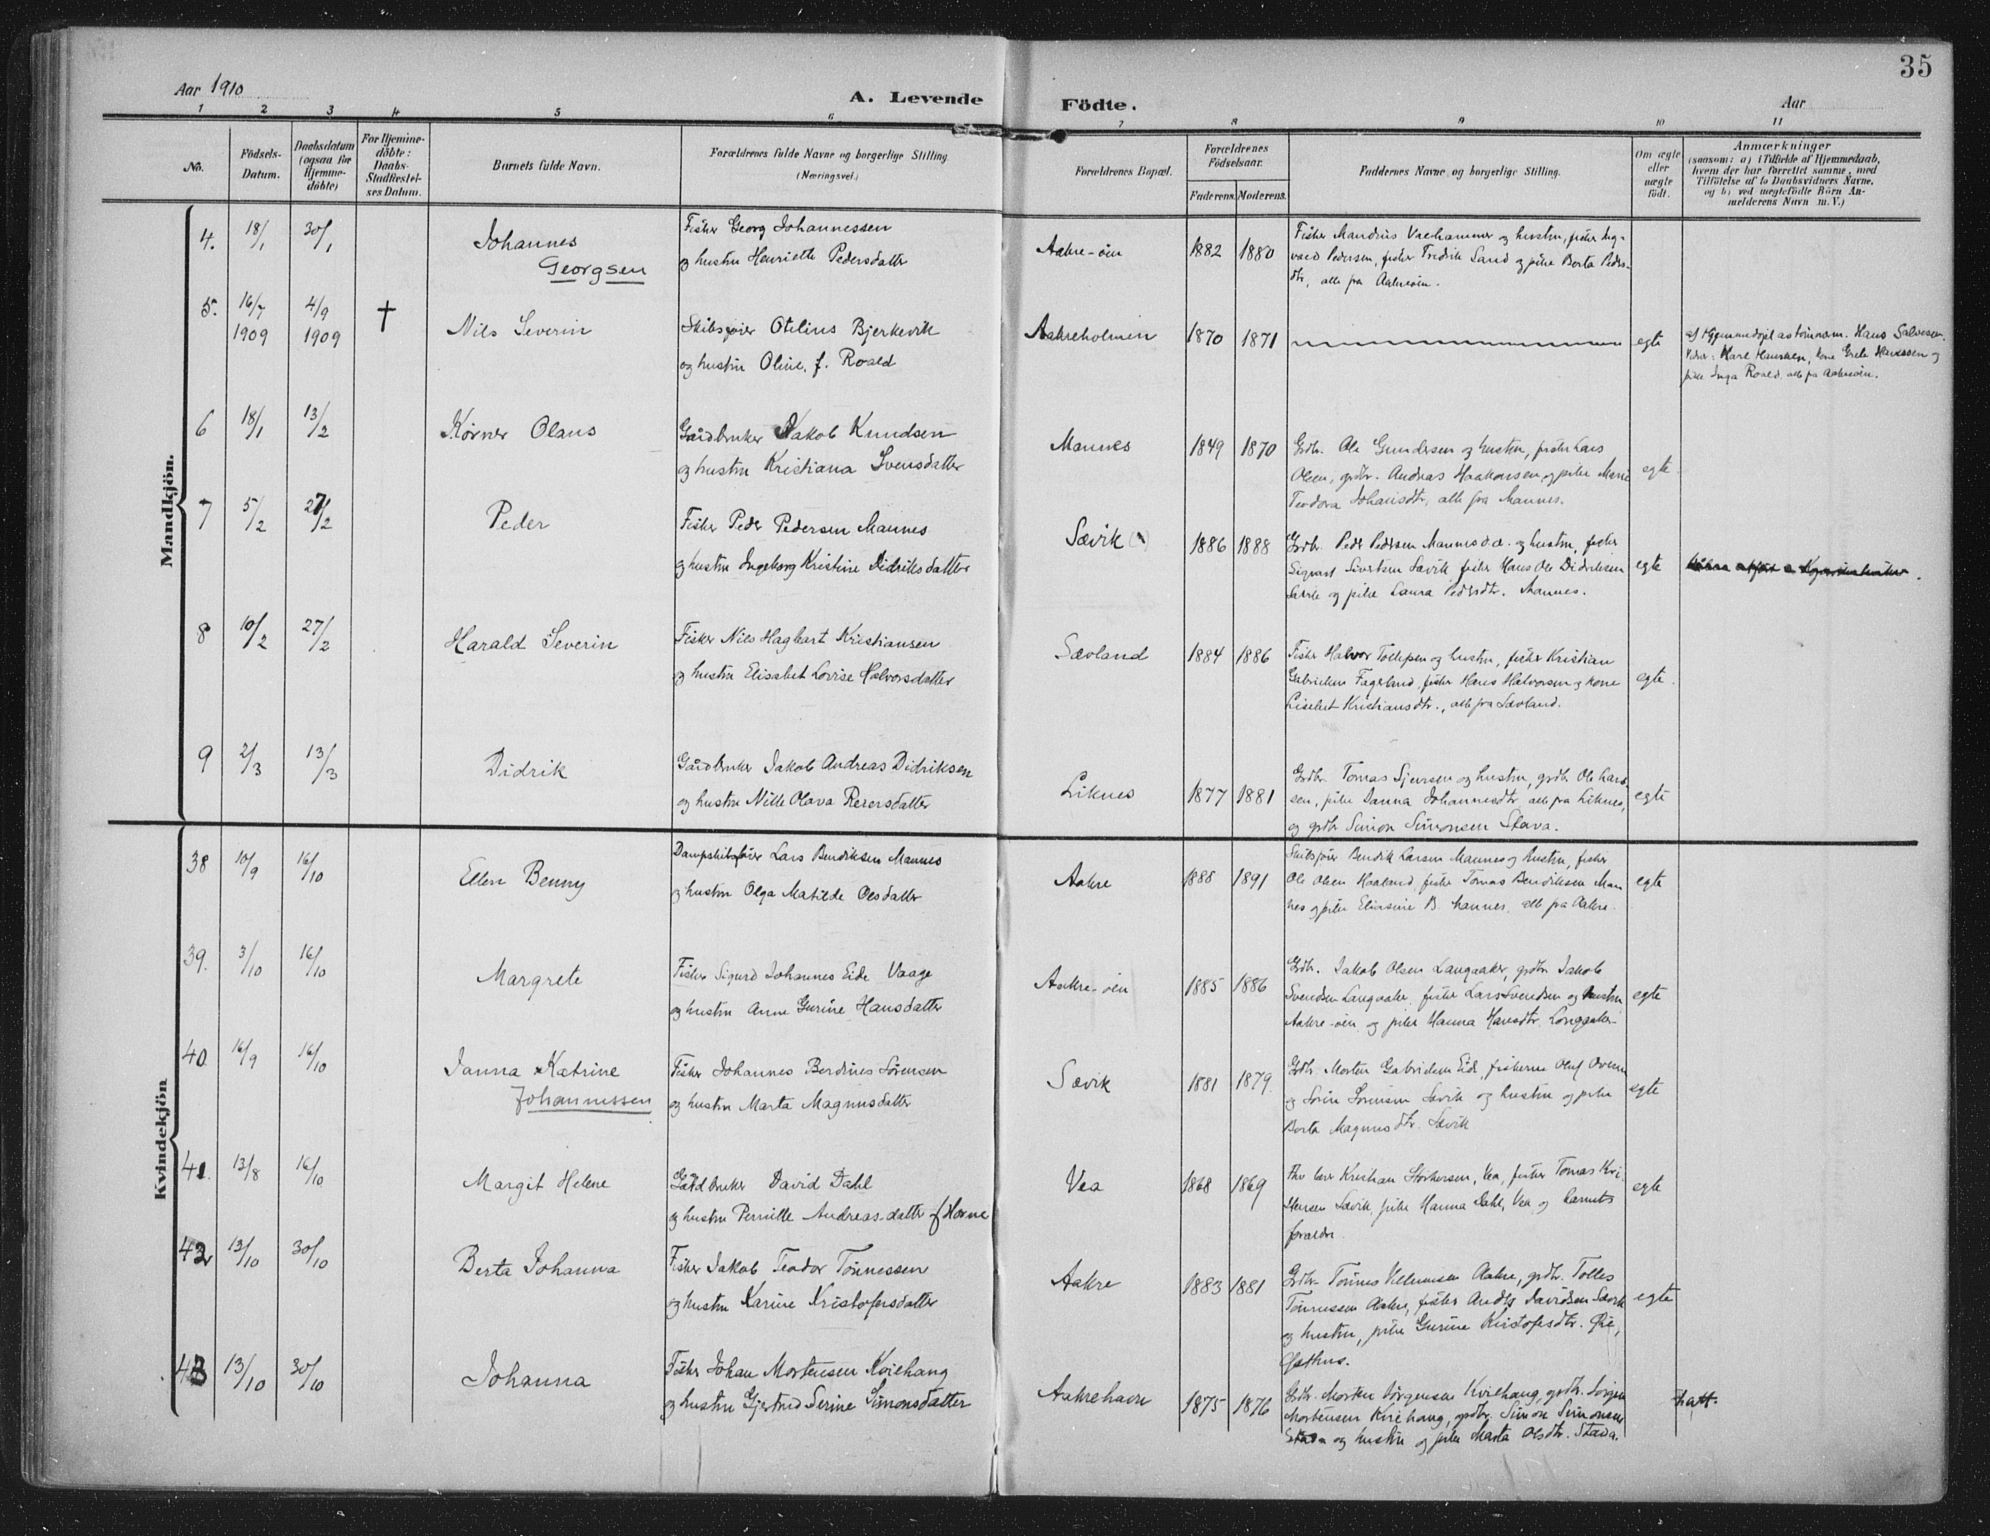 35
Aar 1910
A. Levende Födte.
Aar
1 2 3 4 5 6 7 8 9 10 11
No.
Födsels-Datum.
Daabsdatum (ogsaa for Hjemme-döbte)
For Hjemme-döbte: Daabs-Stadfæstel-ses Datum.
Barnets fulde Navn.
Forældrenes fulde Navne og borgerlige Stilling. (Næringsvei.)
Forældrenes Bopæl.
Forældrenes Födselsaar.
Faderens. Moderens.
Faddernes Navne og borgerlige Stilling.
Om ægte eller uægte født.
Anmærkninger
(saasom: a) i Tilfælde af Hjemmedaab,
hvem der har forrettet samme, med
Tilföielse af to Daabsvidners Navne,
og b) ved uægtefödte Börn An-
melderens Navn m. V.)
Mandkjön.
4. 18/1 30/1 Johannes Georgsen
Fisker Georg Johannessen
og hustru Henriette Pedersdatter
Aakre-öen 1882 1880
Fisker Mandius Vaehammer og hustru, fisker Ing-
vald Pedersen, fisker Fredrik Sand og pike Berta Peders-
dtr, alle fra Aakreöen.
5. 16/7 1909 4/9 1909 † Nils Severin
Skibsfører Otelius Bjerkevik
og hustru Oline, f. Roald
Aakreholmen 1870 1871 egte
Hans Salvesen.
Vidner: Karl Hansen, kone Grete Hanssen og
pike Inga Roald, alle fra Aakreöen.
6 18/1 13/2 Kørner Olaus
Gaardbruker Jakob Knudsen
og hustru Kristiana Svensdatter
Mannes 1849 1870
Grdbr. Ole Gundersen og hustru, fisker Lars
Olsen, grdbr. Andreas Haakonsen og pike Marie
Teodora Johansdtr, alle fra Mannes.
egte
7 5/2 27/2 Peder
Fisker Peder Pedersen Mannes
og hustru Ingeborg Kristine Didriksdatter
Sævik 1886 1888
Grdbr. Peder Pedersen Mannes d.æ. og hustru, fisker
Sigvart Sivertsen Sævik, fisker Hans Ole Didriksen
Sævik og pike Laura Pedersdtr. Mannes.
egte
8 10/2 27/2 Harald Severin
Fisker Nils Hagbart Kristiansen
og hustru Elisabet Lovise Halvorsdatter
Sævland 1884 1886
Fisker Halvor Tollefsen og hustru, fisker Kristian
Gabrielsen Fageland, fisker Hans Halvorsen og kone
Lisebet Kristiansdtr., alle fra Sævland.
egte
9 2/3 13/3 Didrik
Gaardbruker Jakob Andreas Didriksen
og hustru Nille Olava Reiersdatter
Liknes 1877 1881
Grdbr. Tomas Sjursen og hustru, grdbr Ole Lars-
sen, pike Janna Johannesdtr, alle fra Liknes,
og grdbr Simon Simonsen Stava.
egte
Kvindekjön
38 10/9 16/10 Ellen Benny
Dampskibsfører Lars Bendiksen Mannes
og hustru Olga Matilde Olsdatter
Aakre 1888 1891
Skibsfører Bendik Larsen Mannes og hustru, fisker
Ole Olsen Haaland, fisker Tomas Bendiksen Man-
nes og pike Elisine B. Mannes, alle fra Aakre.
egte
39. 3/10 16/10 Margrete
Fisker Sigurd Johannes Eide Vaage
og hustru Anne Gurine Hansdatter
Aakre-öen 1885 1886
Grdbr. Jakob Olsen Langaaker, grdbr Jakob
Svendsen Langaaker, fisker Lars Svendsen og hustru
Aakre-öen og pike Hanna Hansdtr. Langaaker
egte
40 16/9 16/10 Janna Katrine Johannessen
Fisker Johannes Berdines Sørensen
og hustru Marta Magnusdatter
Sævik 1881 1879.
Grdbr. Morten Gabrielsen Eide, fiskerne Oluf
og Sørin Sørensen Sævik og hustru og pike
Berta Magnusdtr. Sævik
egte
41. 13/8 16/10 Margit Helene
Gaardbruker David Dahl
og hustru Pernille Andreasdatter f Horne
Vea 1868 1869
Kristian Storkersen, Vea, fisker Tomas Kri-
stensen Sævik, pike Hanna Dahl, Vea og barnets
foraldre.
egte
42 13/10 30/10 Berta Johanna
Fisker Jakob Teodor Tönnessen
og hustru Karine Kristofersdatter
Aakre 1883 1881
Grdbr. Tönnes Villumsen Aakre, grdbr. Tolles
Tönnessen Aakre, fisker Andrs Davidsen Sævik
og hustru, pike Gurine Kristofersdtr. Øie,
egte
43 13/10 30/10 Johanna
Fisker Johan Mortensen Kviehaug
og hustru Gjertrud Serine Simonsdatter
Aakrehavn 1875 1876
Grdbr. Morten Jørgensen Kviehaug, grdbr. Jørgen
Mortensen Kviehaug, grdbr. Simon Simonsen
Stava og hustru og pike Marta Olsdtr. Stava.